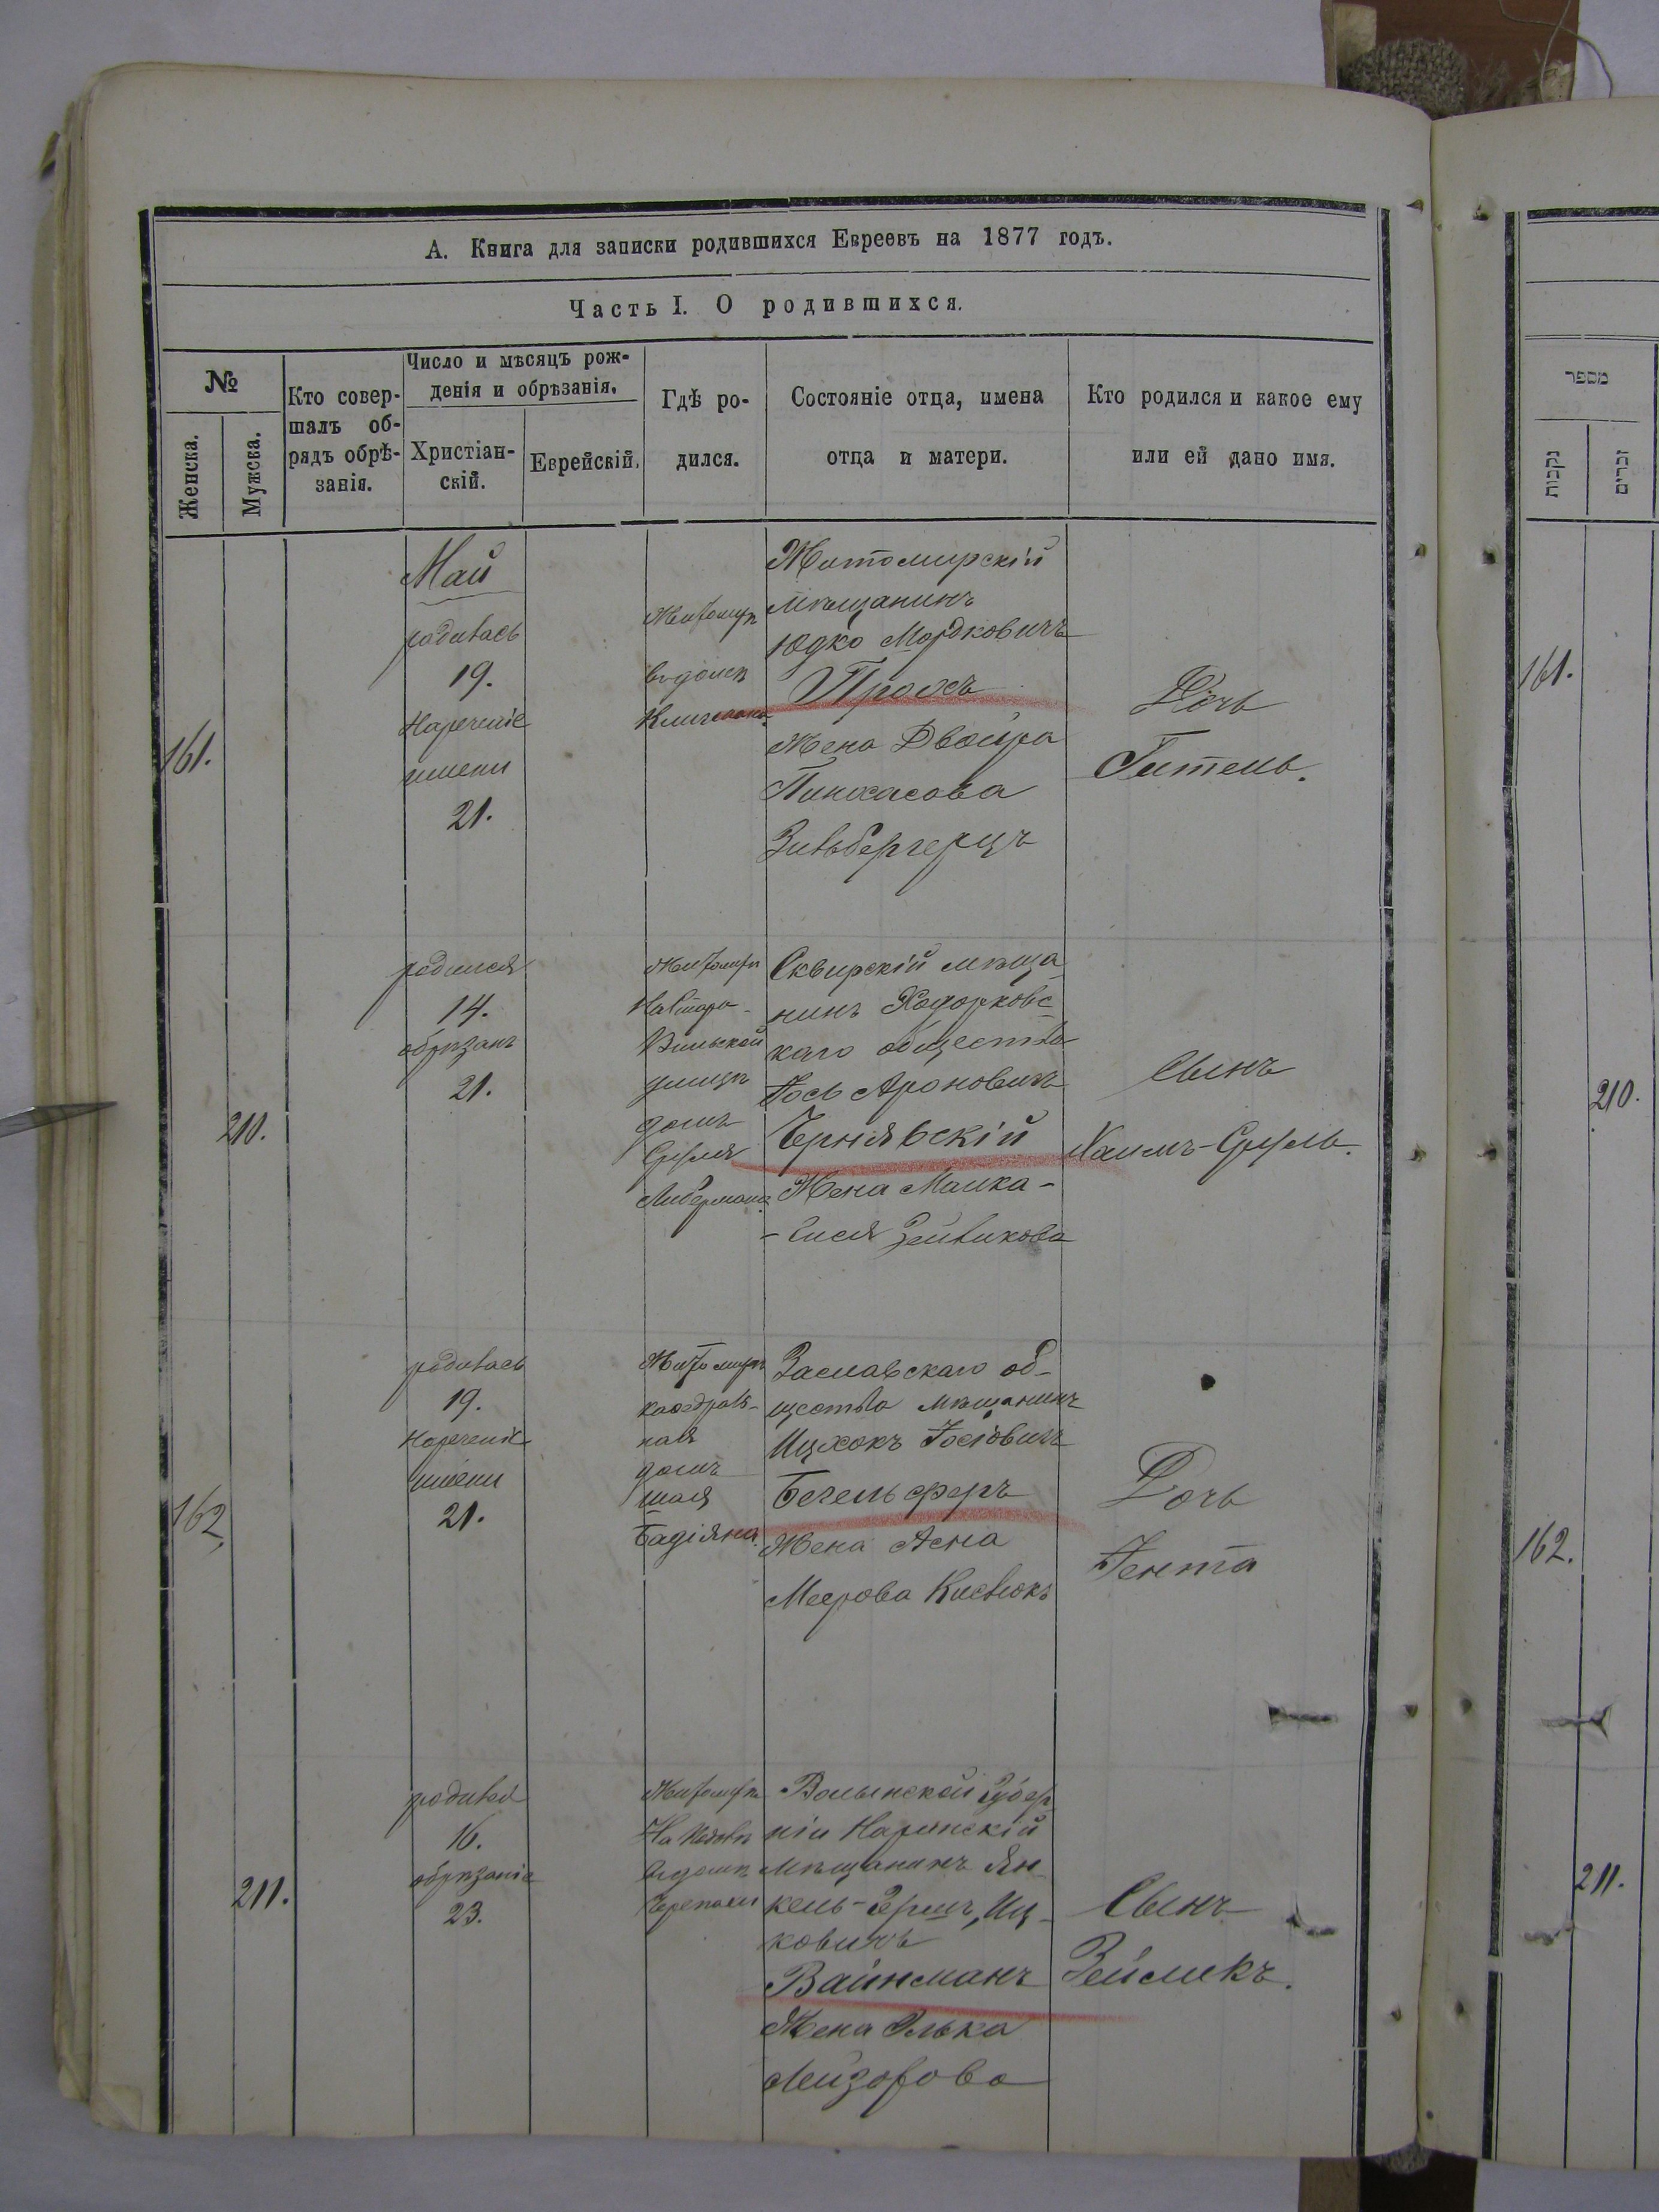 А. Книга для записки родившихся Евреевъ на 1877 годъ.
Часть I. О родившихся.
№
Женска.
Мужска.
Кто совер-
шалъ об-
рядъ обрѣ-
занія.
Число и мѣсяцъ рож-
денія и обрѣзанія.
Христіан-
скій.
Еврейскій.
Гдѣ ро-
дился.
Состояніе отца, имена
отца и матери.
Кто родился и какое ему
или ей дано имя.
161.
Май
родилась
19.
Нареченіе
имени
21.
Житомиръ
въ домѣ
Житомирскій
мѣщанинъ
Юдко Мордковичъ
Проосъ
Жена Двойра
Пинхасова
Зильбергерцъ
Дочь
Гитель.
210.
родился
14.
обрѣзанъ
21.
Житомиръ
На Старо-
Вильской
улицѣ
домъ
Сруля
Либермана
Сквирскій мѣща
нинъ Ходорковс
каго общества
Іось Ароновичъ
Чернявскій
Жена Малка-
-Бися Зейликова
Сынъ
Хаимъ-Сруль.
162.
родилась
19.
Нареченіе
имени
21.
Житомиръ
каѳедраль-
ная
домъ
Бадіяна.
Заславскаго об-
щества мѣщанинъ
Ицхокъ Іосіовичъ
Бегельферъ
Жена Асна
Меерова Киевлокъ
Дочь
Іента
211.
родился
16.
обрѣзаніе
23.
Житомиръ
На
въ домѣ
Черепахи
Волынской Губер
ніи
Мѣщанинъ Ян-
кель-Гершъ Иц-
ковичъ
Вайнманъ
Жена Элька
Лейзорова
Сынъ
Зейликъ.
מספר
נקבות
זכרים
161.
210.
162.
211.